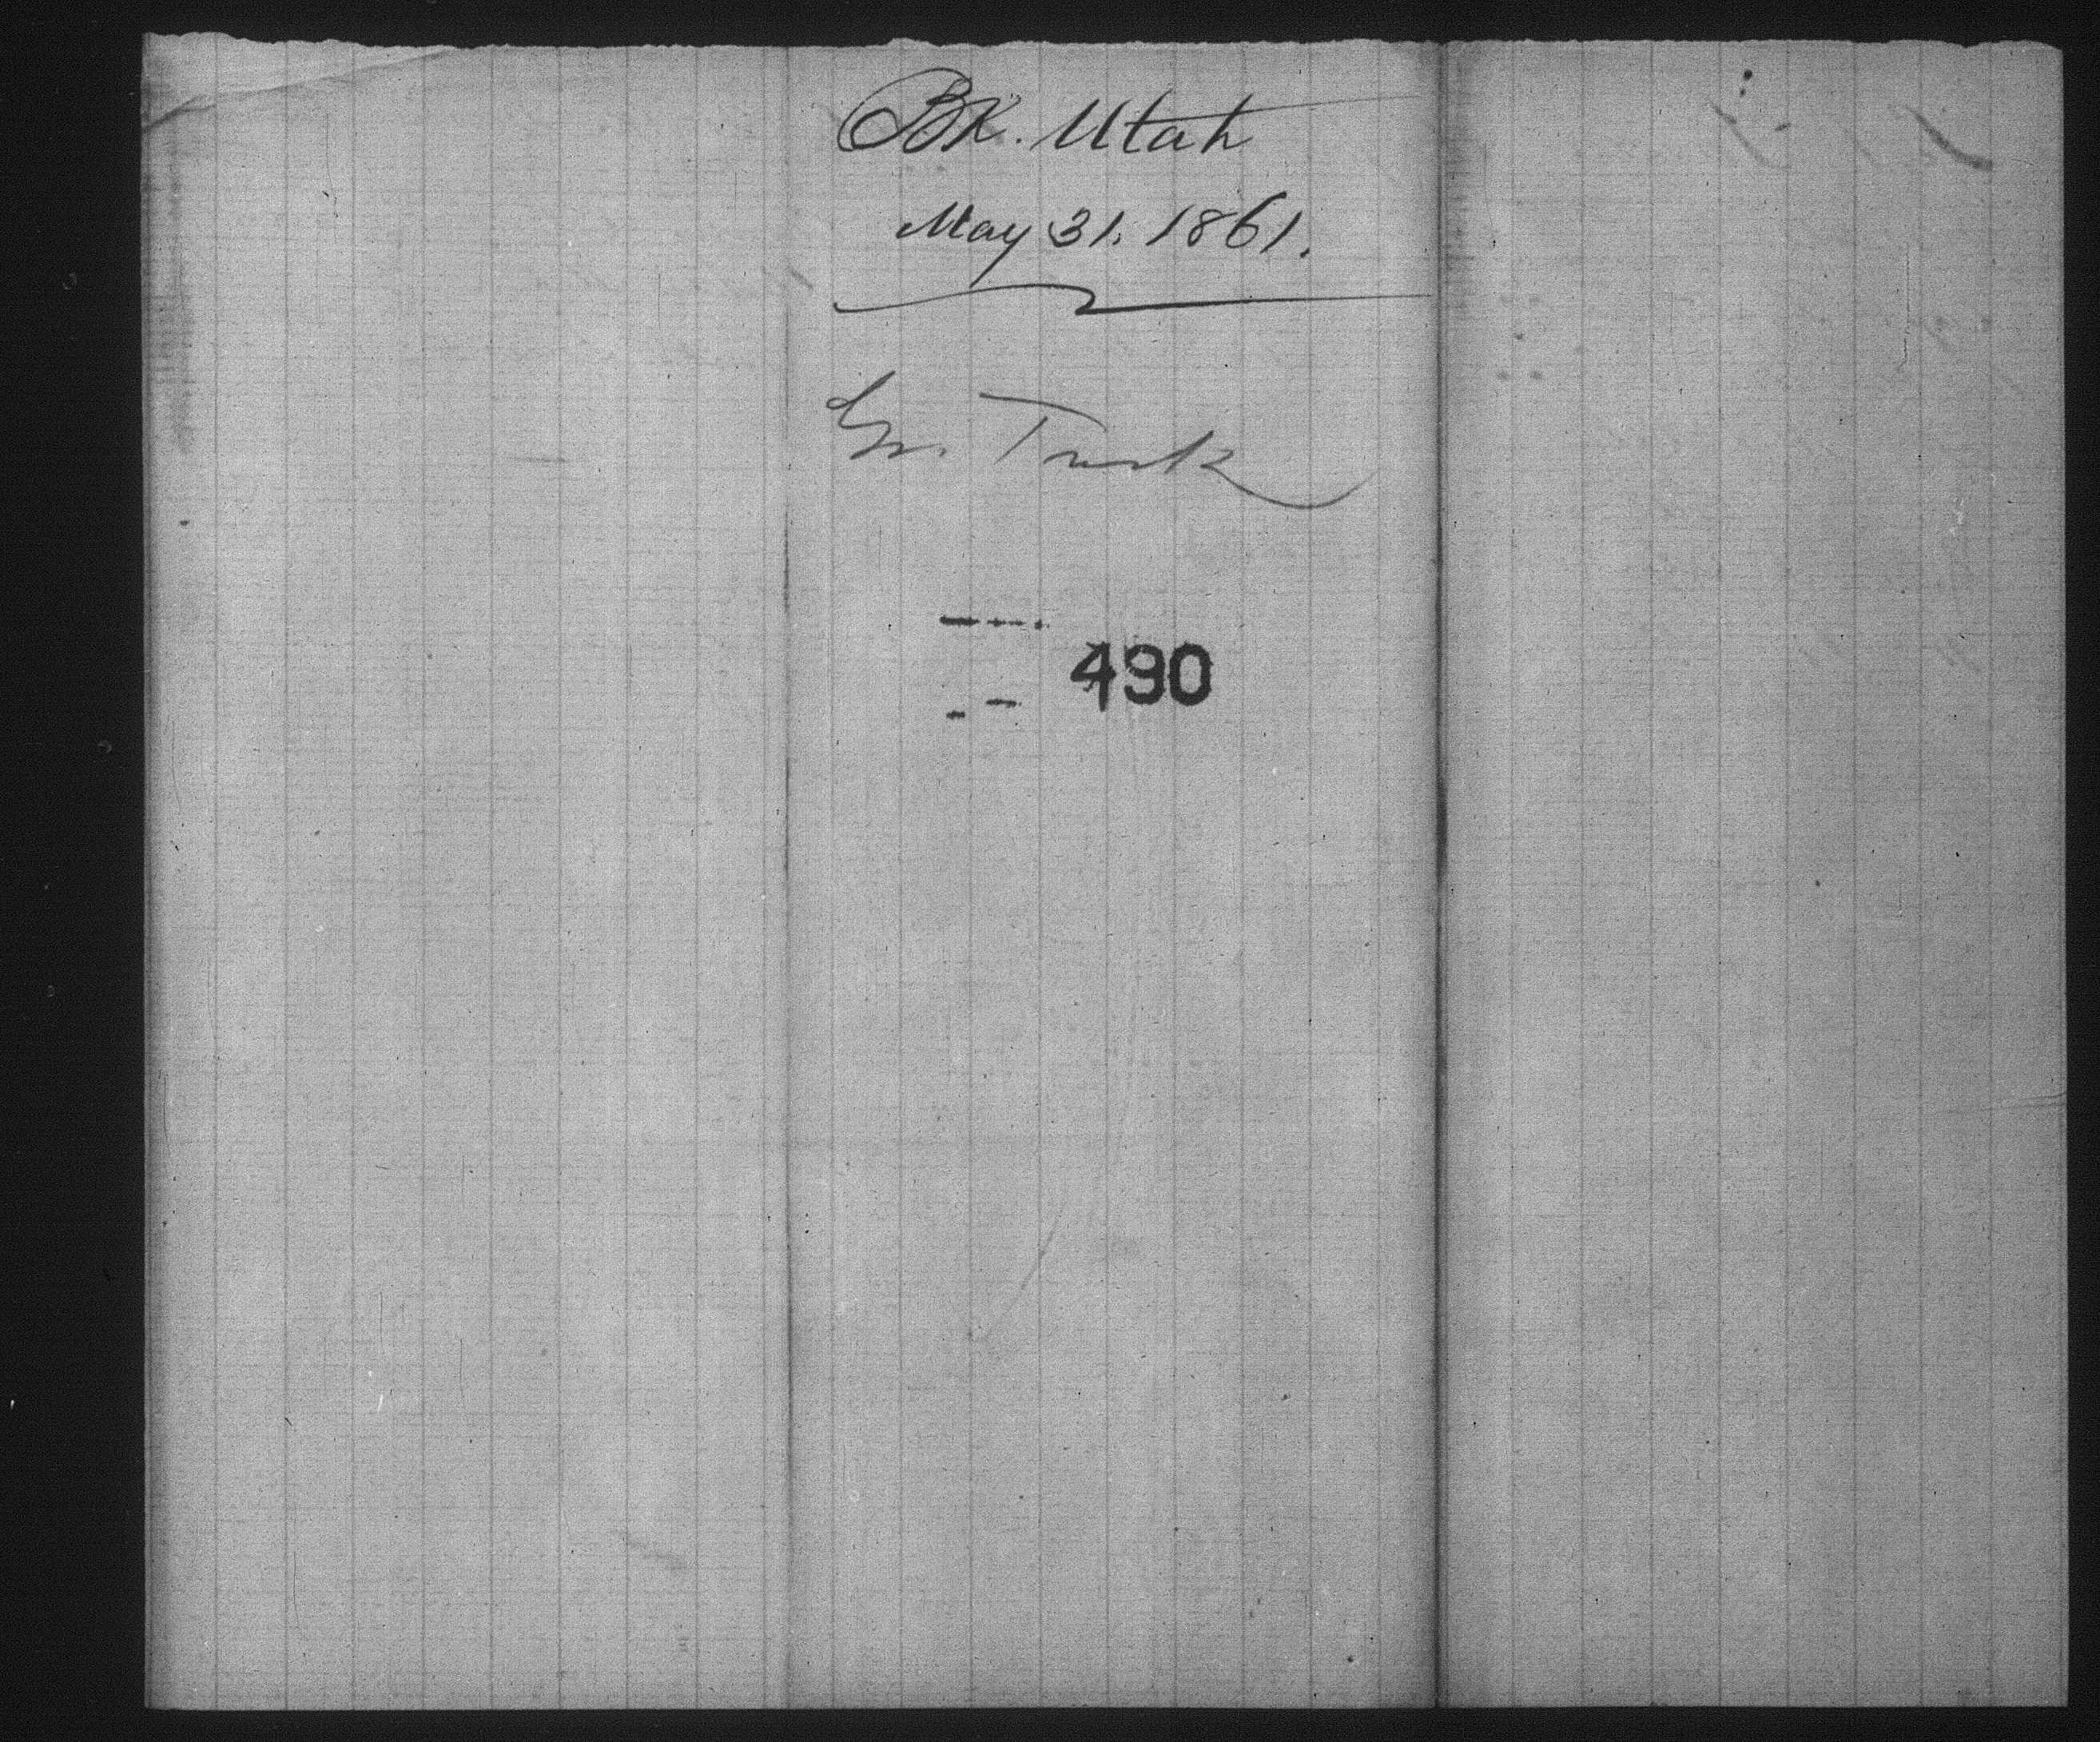 BK. Utah
May 31. 1861.
Gr. Turk
490